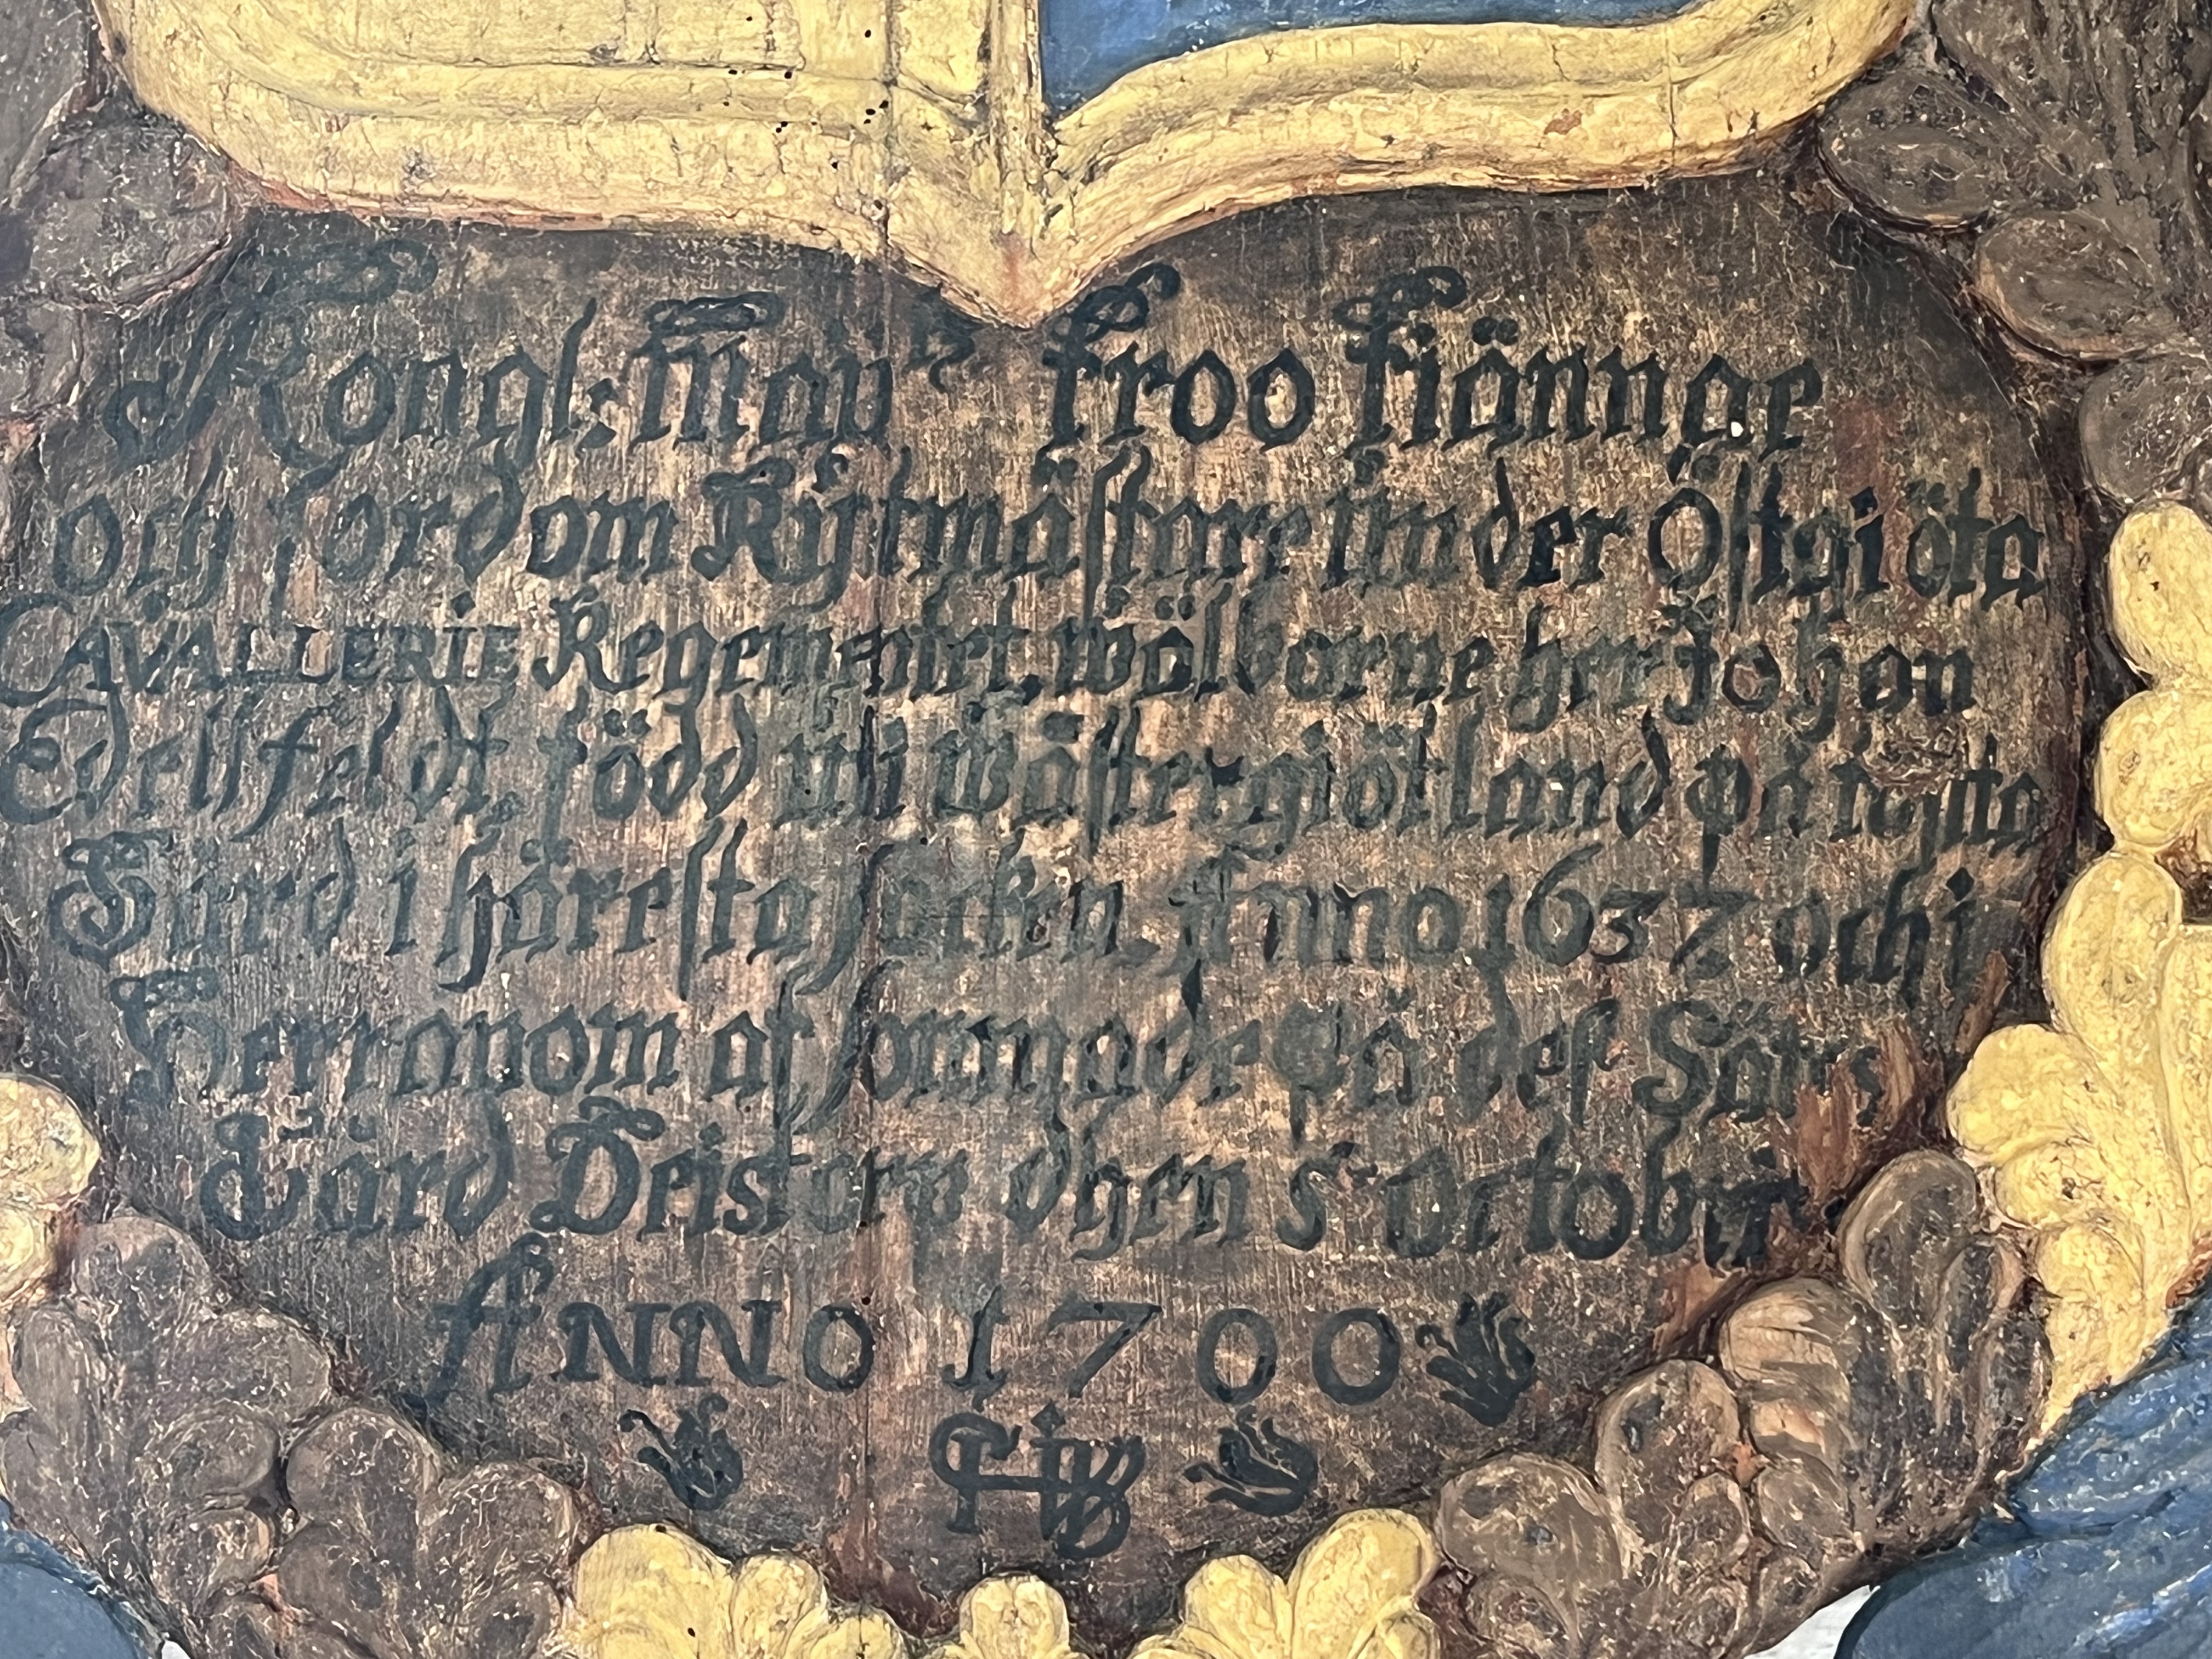 Kongl: Maij:tz Troo Tiännare
och fordom Ryttmästare under Östgiöta
CAVALLERIE Regementet, wälborne herr Johan
Edellfeldt, född uti Wästergiötland på
Gård i häresta socken, Anno 1637 och i
Herranom afsomnade På des Sätes
Gård Deistorp dhen 5 octobris
ANNO 1700